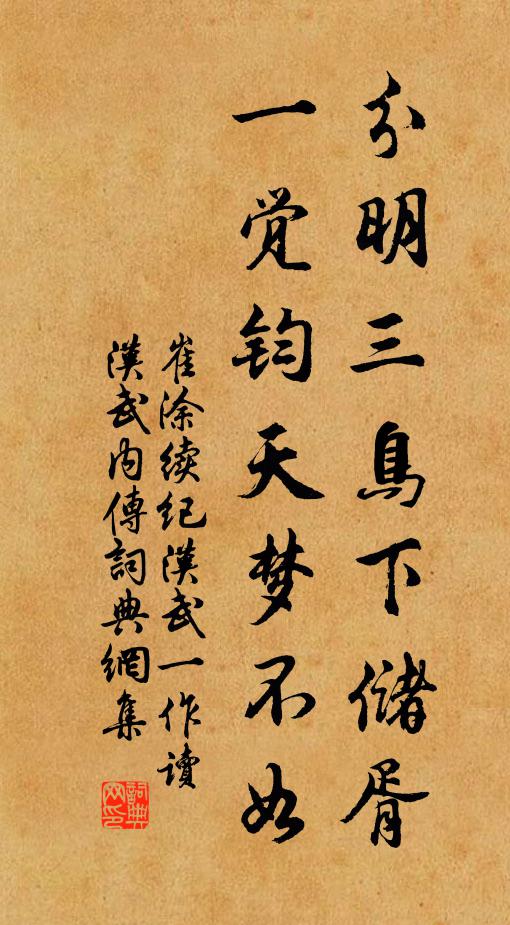 分明三鳥下儲胥
一觉钧天梦不如
崔涂续纪漢武一作讀
漢武内傳詞典網集
詞典
网印